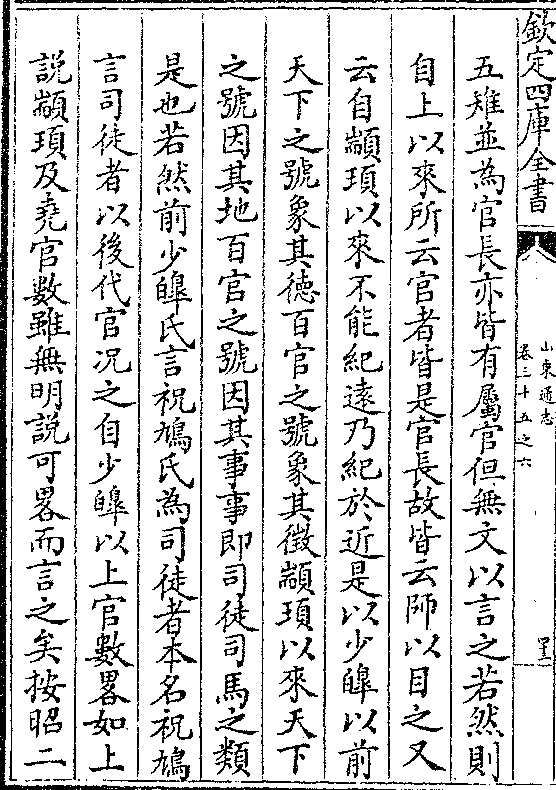 欽定四庫全書
山東通志
卷三十五之六
五雉並為官長亦皆有屬官但無文以言之若然則
自上以來所云官者皆是官長故皆云師以目之又
云自顓頊以來不能紀遠乃紀於近是以少皥以前
天下之號象其德百官之號象其徵顓頊以來天下
之號因其地百官之號因其事事即司徒司馬之類
是也若然前少皥氏言祝鳩氏為司徒者本名祝鳩
言司徒者以後代官况之自少皥以上官數畧如上
説顓頊及堯官數雖無明説可畧而言之矣按昭二